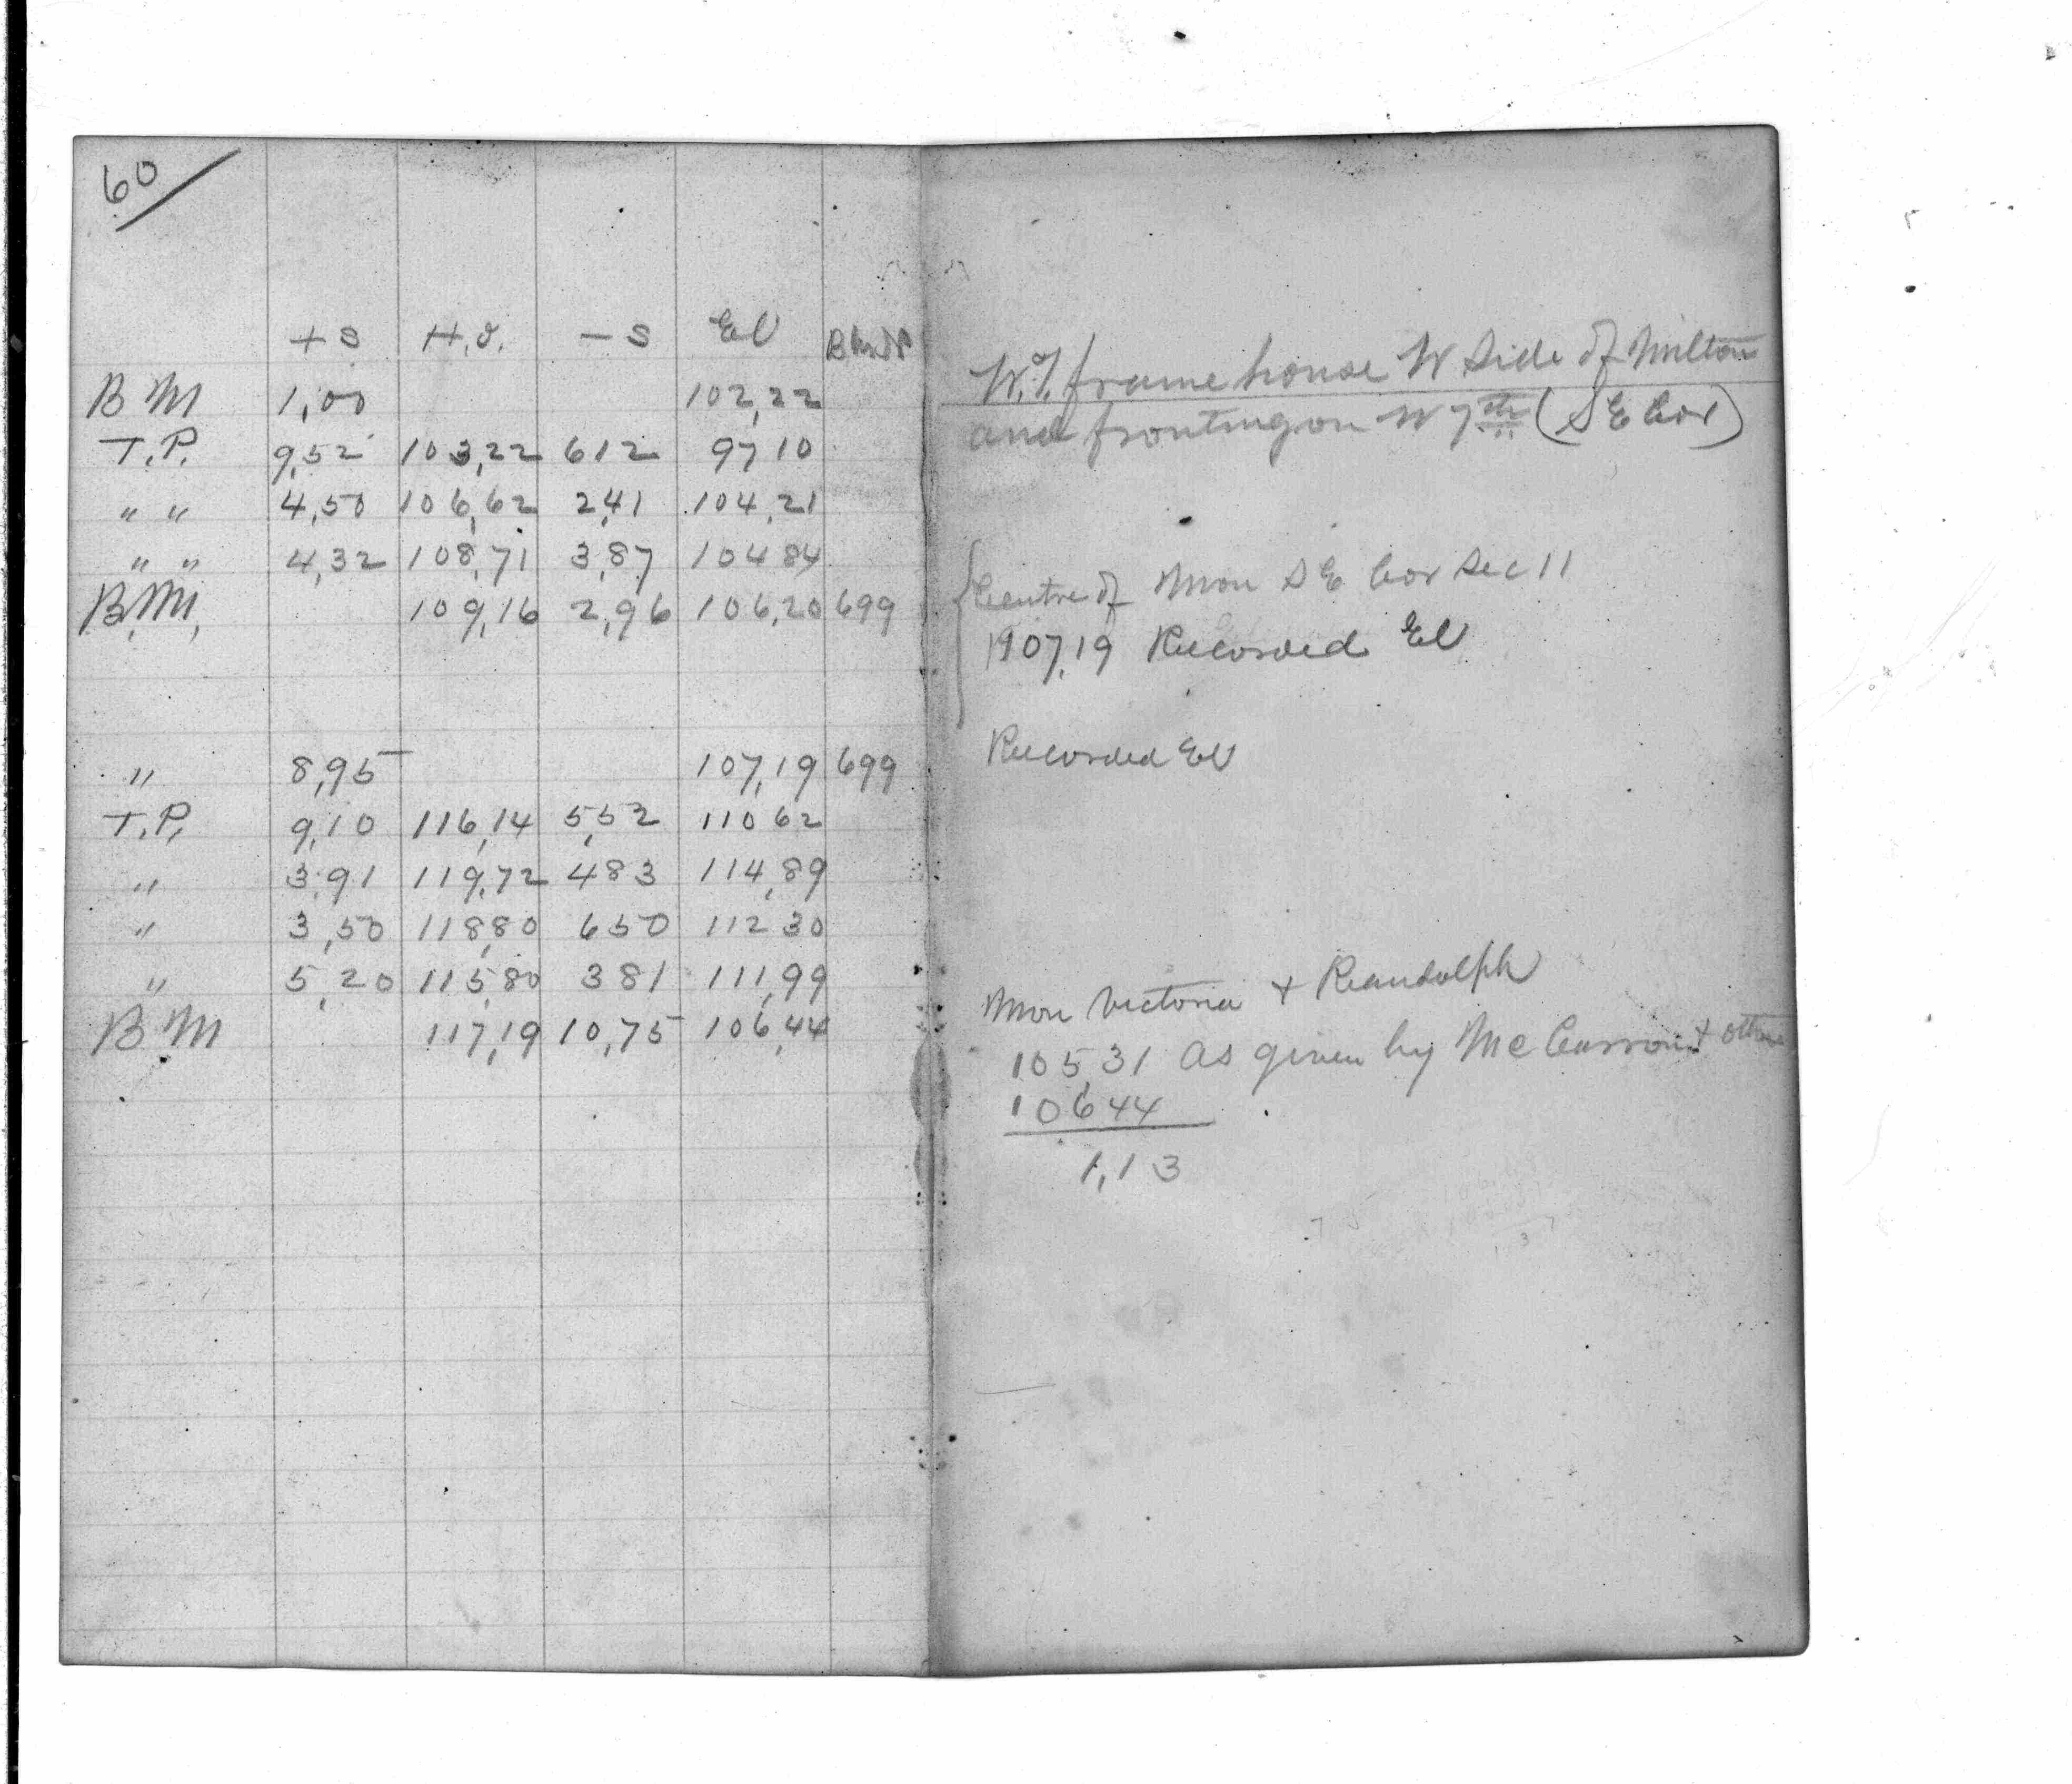 60
+S H.I. -S El
BM 1,00 102,22
T.P. 9,52 103,22 612 97 10
" " 4,50 106,62 2,41 104,21
" " 4,32 108,71 3,87 104 84
B.M. 109,16 2,96 106,20 699
" 8,95 107,19 699
T.P. 9,10 116,14 5,52 110 62
" 3,91 119,72 483 114,89
" 3,50 118,80 650 112 30
" 5,20 115,80 381 111,99
BM 117,19 10,75 106,44
W.T. frame house W Side of Milton
and fronting on W 7th (S E Cor)
Centre of Mon S E Cor Sec 11
107,19 Recorded El
Recorded El
Mon Victoria + Randolph
105 31 as given by + others
106 44
1,13